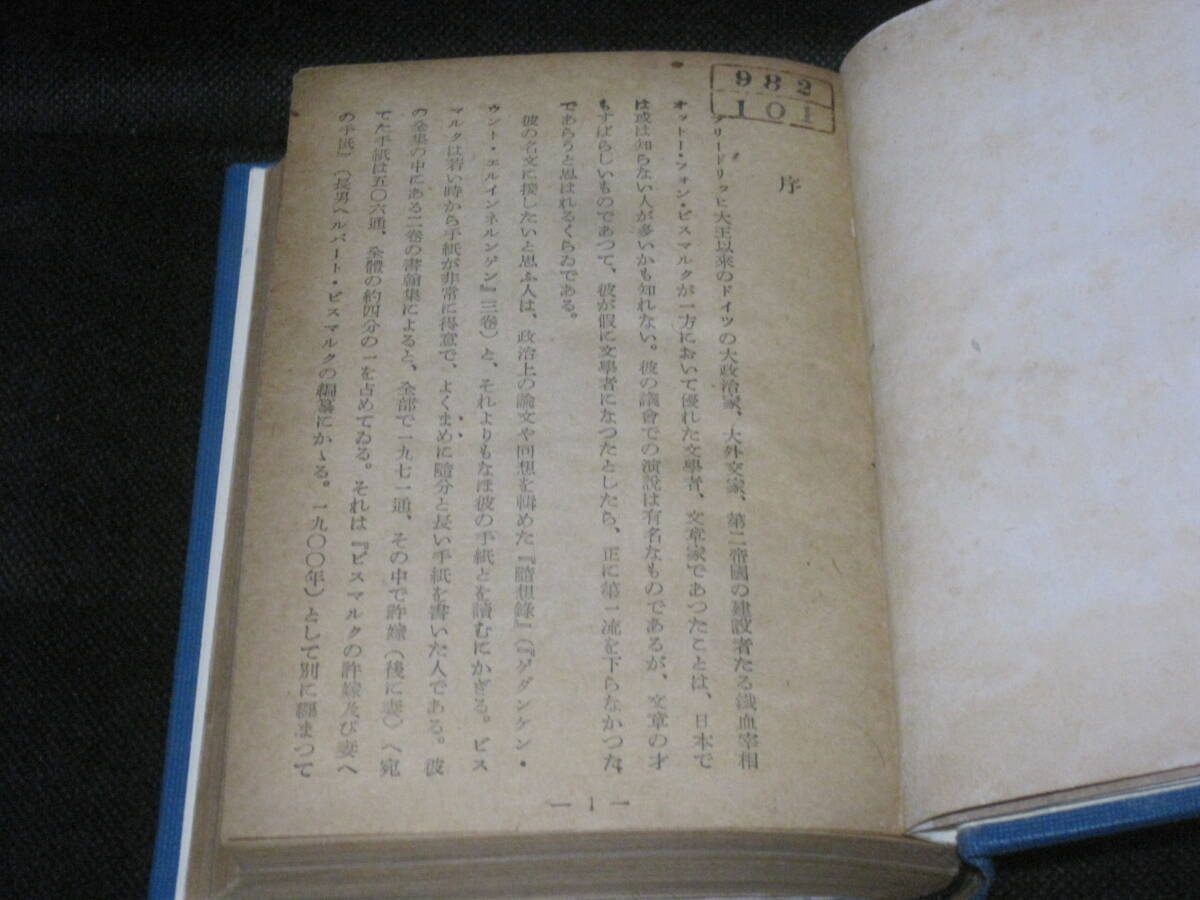 982
101
序
フリードリッヒ大王以来のドイツの大政治家、大外交家、第二帝國の建設者たる鐵血宰相
オットー・フォン・ビスマルクが一方において優れた文學者、文章家であつたことは、日本で
は或は知らない人が多いかも知れない。彼の議會での演説は有名なものであるが、文章の才
もすばらしいものであつて、彼が假に文學者になつたとしたら、正に第一流を下らなかつた
であらうと思はれるくらゐである。
彼の名文に接したいと思ふ人は、政治上の論文や回想を輯めた『隨想錄』(『ゲダンケン・
ウント・エルインネルンゲン』三卷)と、それよりもなほ彼の手紙とを讀むにかぎる。ビス
マルクは若い時から手紙が非常に得意で、よくまめに隨分と長い手紙を書いた人である。彼
の全集の中にある二卷の書翰集によると、全部で一九七一通、その中で許嫁(後に妻)へ宛
てた手紙は五〇六通、全體の約四分の一を占めてゐる。それは『ビスマルクの許嫁及び妻へ
の手紙』(長男ヘルバート・ビスマルクの編纂にかゝる。一九〇〇年)として別に纒まつて
— 1 —